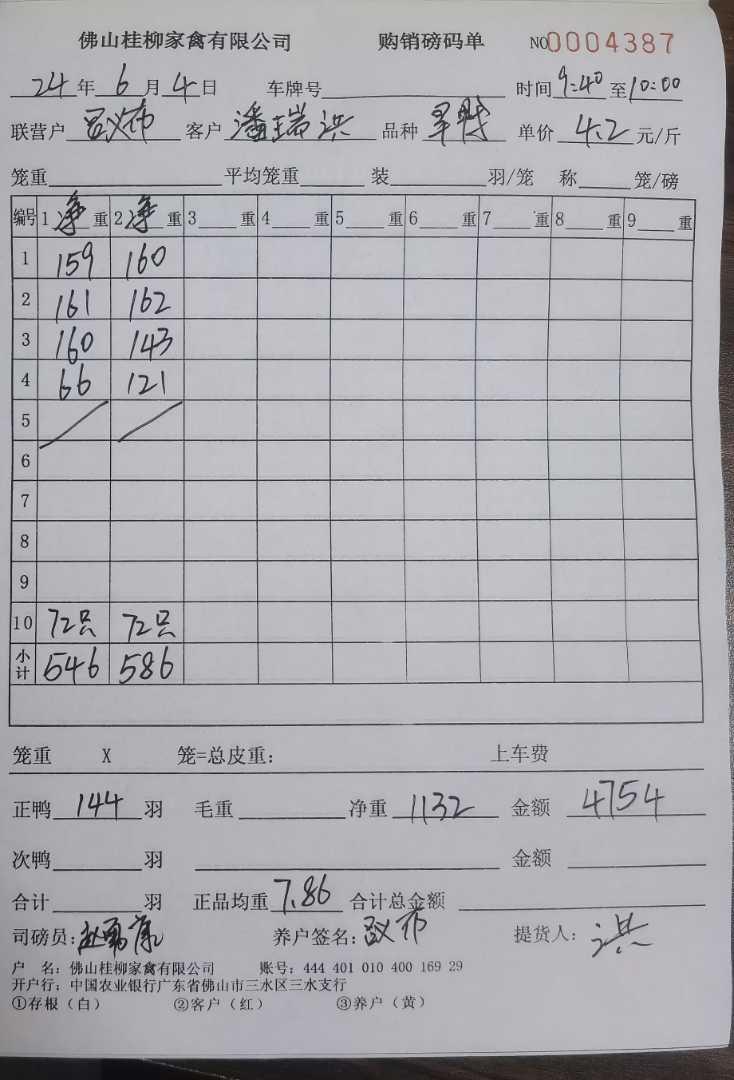 佛山桂柳家禽有限公司 购销磅码单 NO0004387
24年6月4日 车牌号 时间9:40至10:00
联营户 客户潘瑞洪 品种 单价4.2元/斤
笼重 平均笼重 装 羽/笼 称 笼/磅
编号 1净重 2净重 3重 4重 5重 6重 7重 8重 9重
1 159 160
2 161 162
3 160 143
4 66 121
5
6
7
8
9
10 72只 72只
小计 546 586
笼重 X 笼=总皮重: 上车费
正鸭144羽 毛重 净重1132 金额4754
次鸭 羽 金额
合计 羽 正品均重7.86 合计总金额
司磅员: 养户签名: 提货人:洪
户 名: 佛山桂柳家禽有限公司 账号: 444 401 010 400 169 29
开户行: 中国农业银行广东省佛山市三水区三水支行
①存根(白) ②客户(红) ③养户(黄)